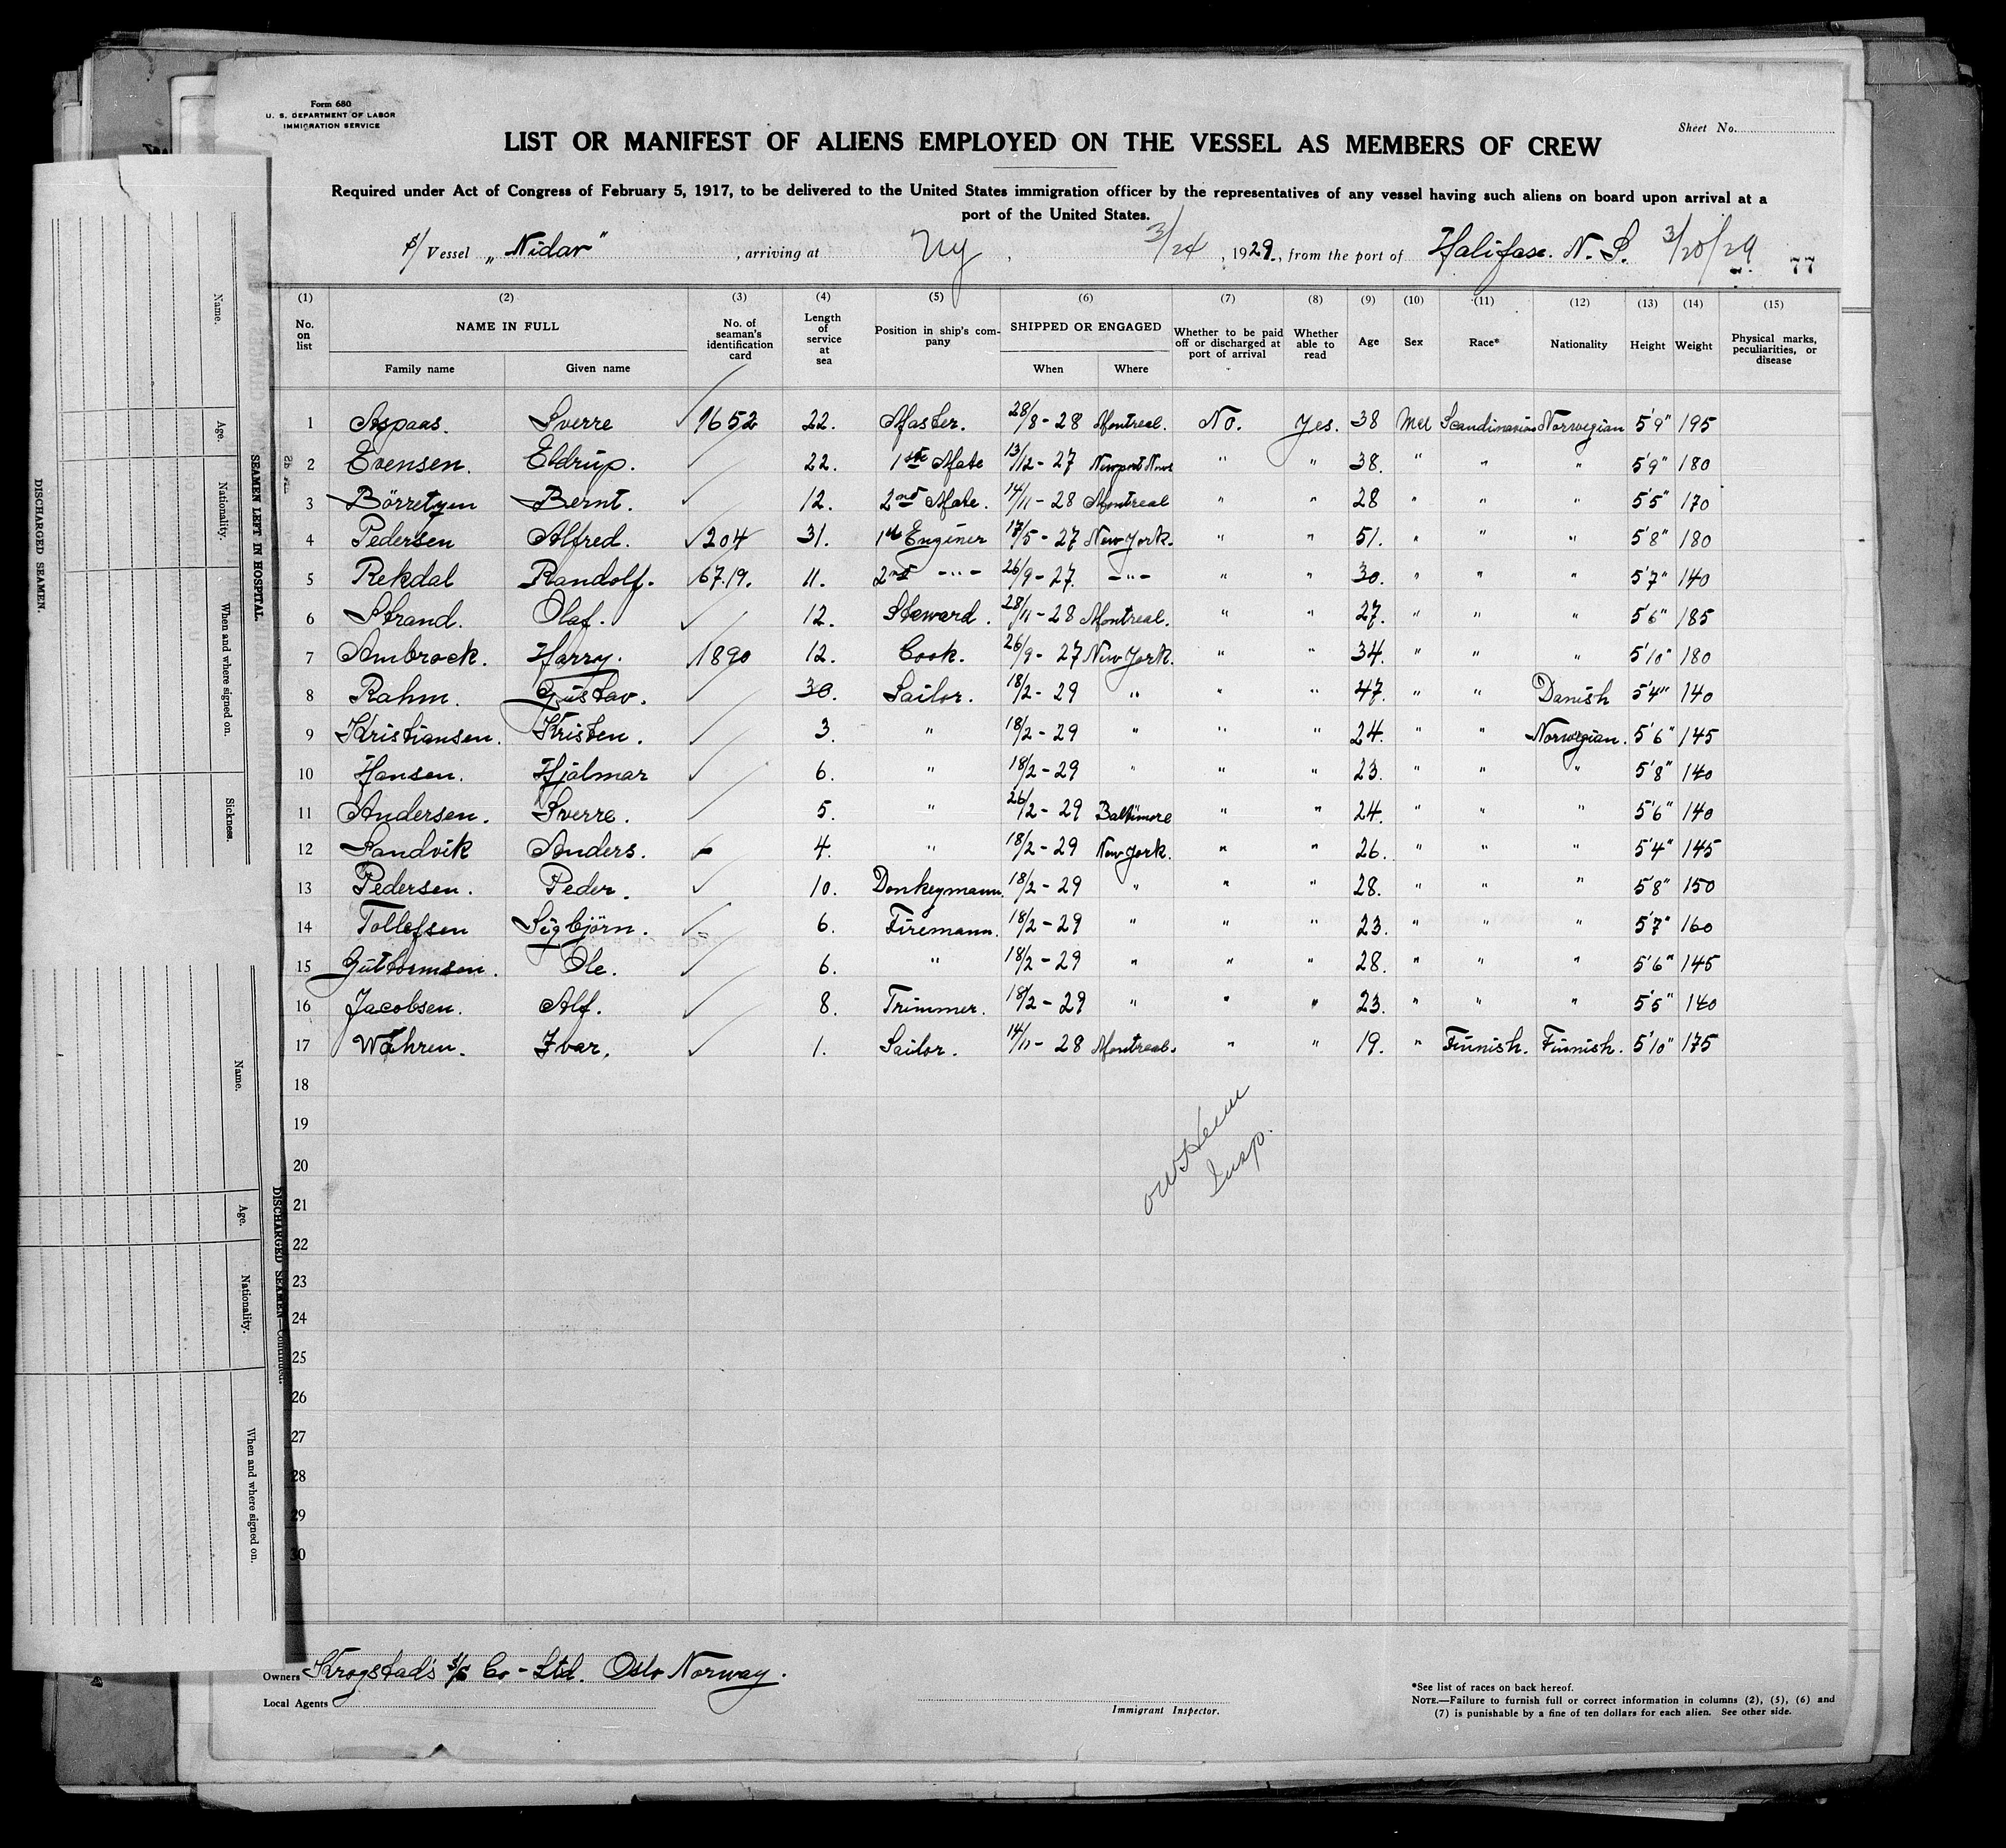 Form 680
U. S. DEPARTMENT OF LABOR
IMMIGRATION SERVICE
Sheet No.
LIST OR MANIFEST OF ALIENS EMPLOYED ON THE VESSEL AS MEMBERS OF CREW
Required under Act of Congress of February 5, 1917, to be delivered to the United States immigration officer by the representatives of any vessel having such aliens on board upon arrival at a
port of the United States.
S/ Vessel „Nidar", arriving at NY, 3/24, 1929., from the port of Halifax. N. S. 3/20/29 77
(1) (2) (3) (4) (5) (6) (7) (8) (9) (10) (11) (12) (13) (14) (15)
No. on list NAME IN FULL Family name Given name No. of seaman's identification card Length of service at sea Position in ship's company SHIPPED OR ENGAGED When Where Whether to be paid off or discharged at port of arrival Whether able to read Age Sex Race* Nationality Height Weight Physical marks, peculiarities, or disease
1 Aspaas. Sverre 1652 22. Master. 28/8-28 Montreal. No. Yes. 38 Mel Scandinavian Norwegian 5'9" 195
2 Evensen. Eldrup. 22. 1ste Mate 13/12-27 Newport News " " 38. " " " 5'9" 180
3 Börretzen Bernt. 12. 2nd Mate. 14/11-28 Montreal " " 28 " " " 5'5" 170
4 Pedersen Alfred. 204 31. 1st Enginer 17/5-27 New York. " " 51. " " " 5'8" 180
5 Rekdal Randolf. 67.19. 11. 2nd -"- 26/9-27. -"- " " 30. " " " 5'7" 140
6 Strand. Olaf. 12. Steward. 28/11-28 Montreal. " " 27. " " " 5'6" 185
7 Ambrock. Harry. 1890 12. Cook. 26/9-27 New York. " " 34. " " " 5'10" 180
8 Rahm. Gustav. 30. Sailor. 18/2-29 " " " 47. " " Danish 5'4" 140
9 Kristiansen. Kristen. 3. " 18/2-29 " " " 24. " " Norwegian. 5'6" 145
10 Hansen. Hjalmar 6. " 18/2-29 " " " 23. " " " 5'8" 140
11 Andersen. Sverre. 5. " 26/2-29 Baltimore " " 24. " " " 5'6" 140
12 Sandvik Anders. 4. " 18/2-29 New York. " " 26. " " " 5'4" 145
13 Pedersen. Peder. 10. Donkeymann. 18/2-29 " " " 28. " " " 5'8" 150
14 Tollefsen Sigbjörn. 6. Firemann. 18/2-29 " " " 23. " " " 5'7" 160
15 Guttormsen. Ole. 6. " 18/2-29 " " " 28. " " " 5'6" 145
16 Jacobsen. Alf. 8. Trimmer. 18/2-29 " " " 23. " " " 5'5" 140
17 Wahren. Ivar. 1. Sailor. 14/11-28 Montreal. " " 19. " Finnish. Finnish. 5'10" 175
18
19
20
21
22
23
24
25
26
27
28
29
30
Insp.
Owners Krogstad's S/S Co-Ltd. Oslo Norway.
Local Agents
Immigrant Inspector.
*See list of races on back hereof.
NOTE.—Failure to furnish full or correct information in columns (2), (5), (6) and
(7) is punishable by a fine of ten dollars for each alien. See other side.
SEAMEN LEFT IN HOSPITAL.
Name.
Age.
Nationality.
When and where signed on.
Sickness.
DISCHARGED SEAMEN.
DISCHARGED SEAMEN—Continued.
Name.
Age.
Nationality.
When and where signed on.